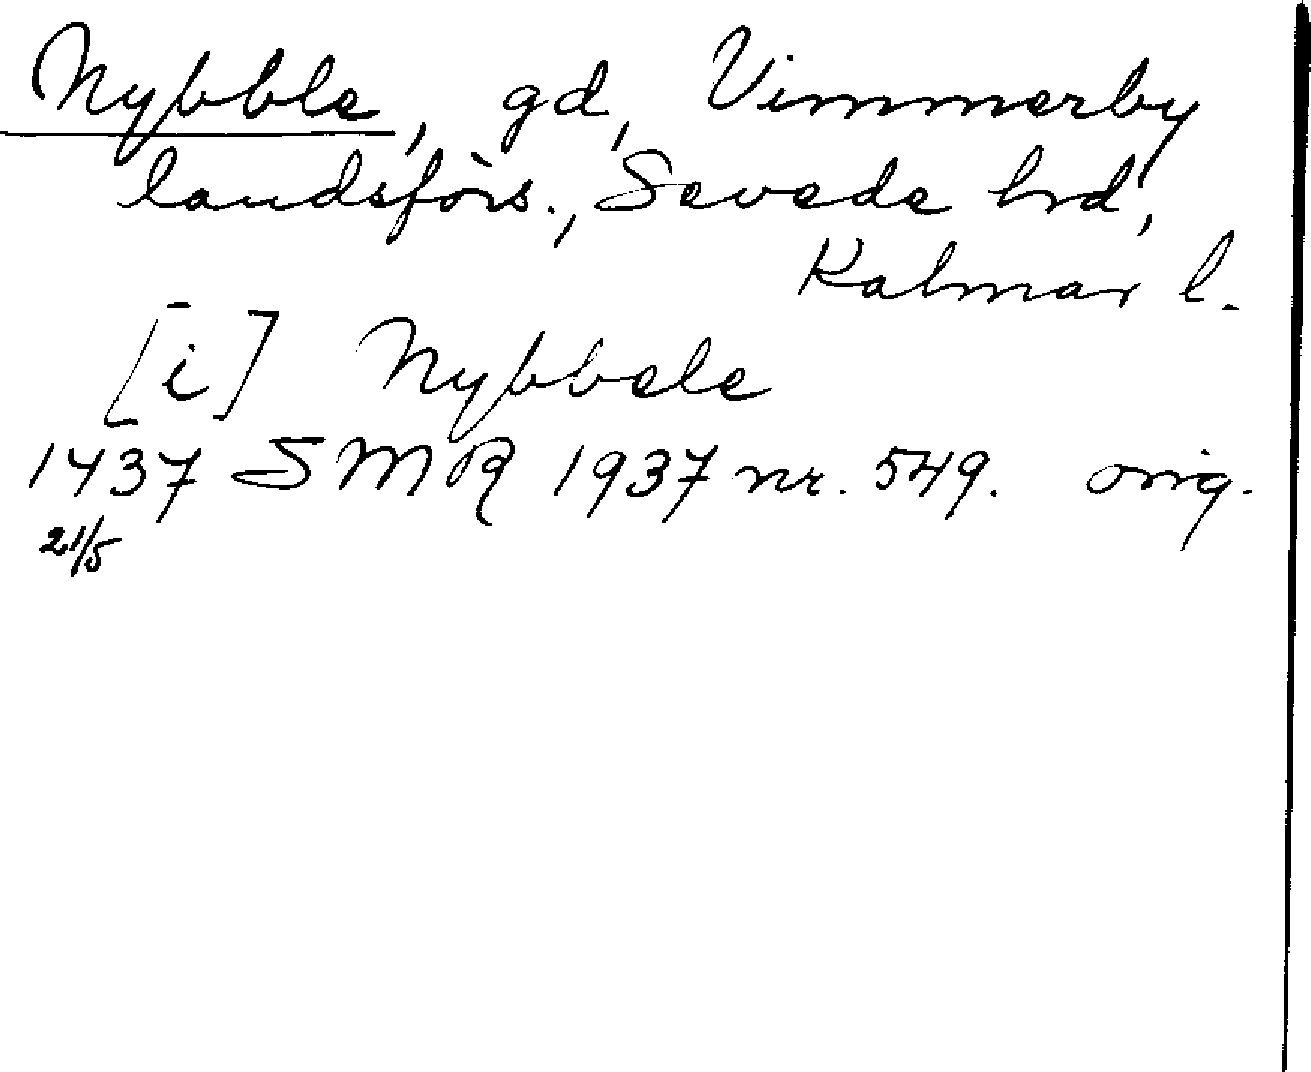 Nybble, gd, Vimmerby
landsförs., Sevede hrd,
Kalmar l.
[i] Nybbele
1437 SMR 1937 nr. 549. orig.
21/5